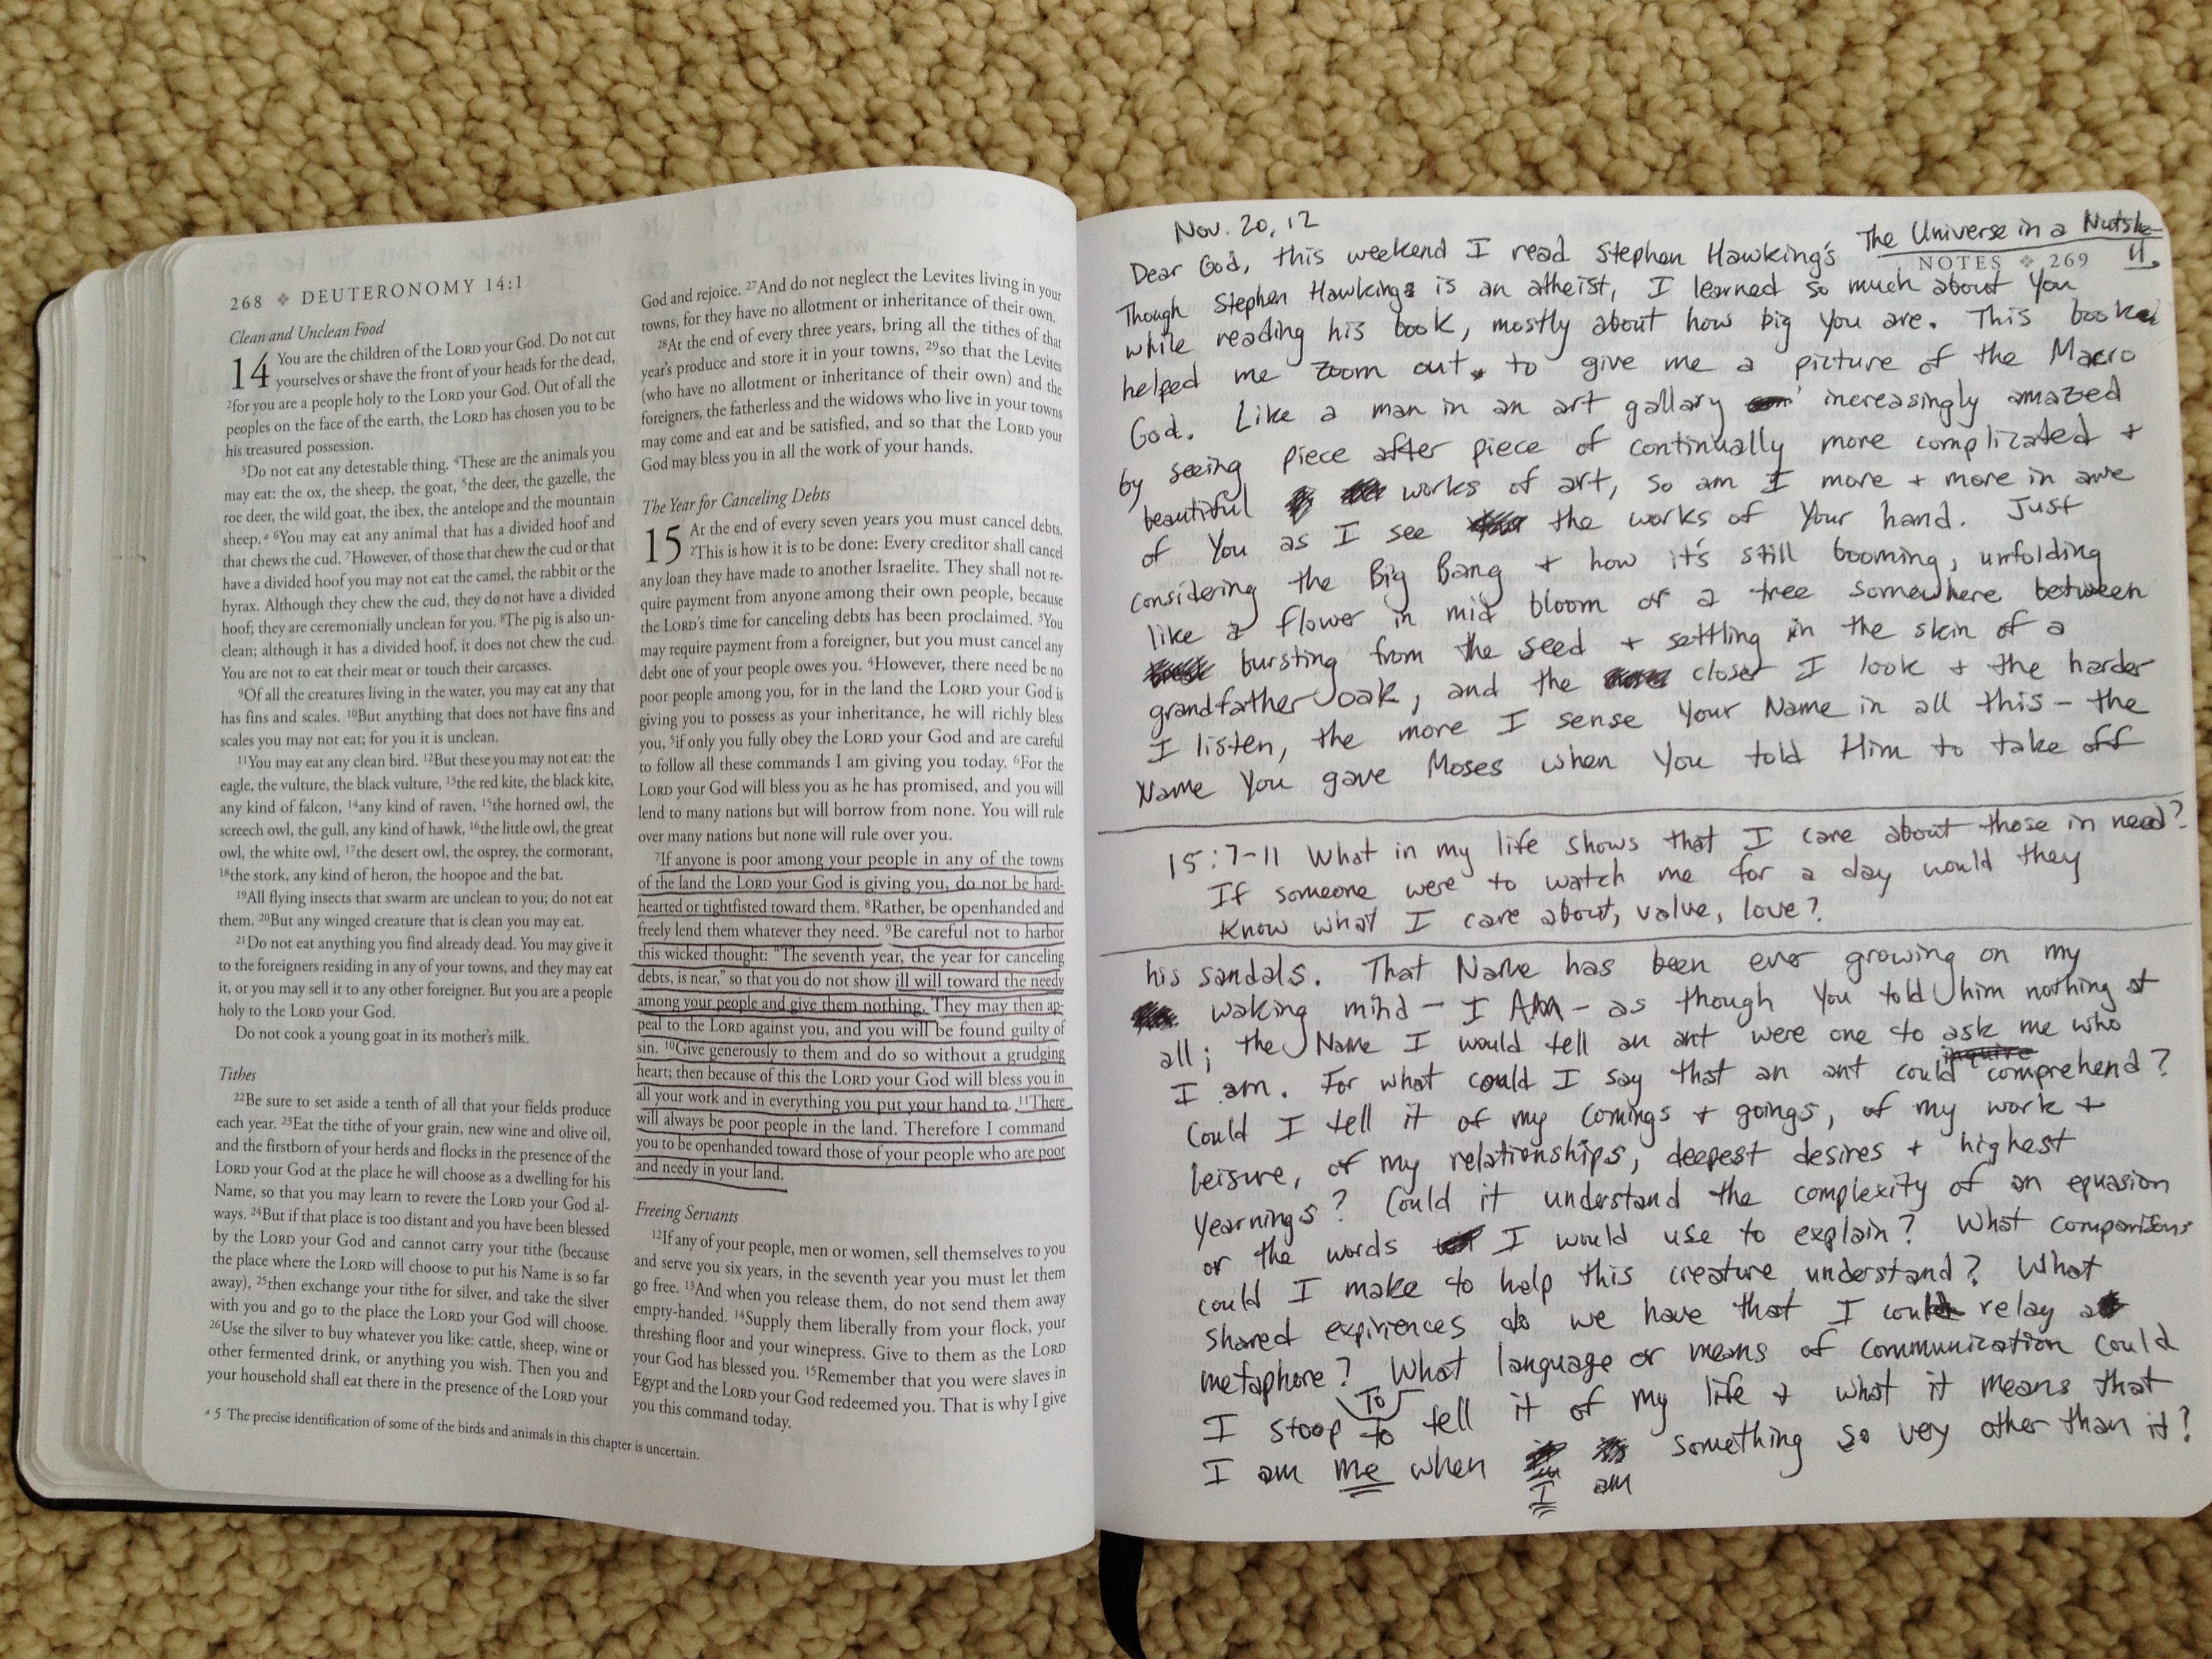 268 ❖ DEUTERONOMY 14:1
Clean and Unclean Food
14 You are the children of the LORD your God. Do not cut
yourselves or shave the front of your heads for the dead,
²for you are a people holy to the LORD your God. Out of all the
peoples on the face of the earth, the LORD has chosen you to be
his treasured possession.
³Do not eat any detestable thing. ⁴These are the animals you
may eat: the ox, the sheep, the goat, ⁵the deer, the gazelle, the
roe deer, the wild goat, the ibex, the antelope and the mountain
sheep.ᵃ ⁶You may eat any animal that has a divided hoof and
that chews the cud. ⁷However, of those that chew the cud or that
have a divided hoof you may not eat the camel, the rabbit or the
hyrax. Although they chew the cud, they do not have a divided
hoof; they are ceremonially unclean for you. ⁸The pig is also un-
clean; although it has a divided hoof, it does not chew the cud.
You are not to eat their meat or touch their carcasses.
⁹Of all the creatures living in the water, you may eat any that
has fins and scales. ¹⁰But anything that does not have fins and
scales you may not eat; for you it is unclean.
¹¹You may eat any clean bird. ¹²But these you may not eat: the
eagle, the vulture, the black vulture, ¹³the red kite, the black kite,
any kind of falcon, ¹⁴any kind of raven, ¹⁵the horned owl, the
screech owl, the gull, any kind of hawk, ¹⁶the little owl, the great
owl, the white owl, ¹⁷the desert owl, the osprey, the cormorant,
¹⁸the stork, any kind of heron, the hoopoe and the bat.
¹⁹All flying insects that swarm are unclean to you; do not eat
them. ²⁰But any winged creature that is clean you may eat.
²¹Do not eat anything you find already dead. You may give it
to the foreigners residing in any of your towns, and they may eat
it, or you may sell it to any other foreigner. But you are a people
holy to the LORD your God.
Do not cook a young goat in its mother's milk.
Tithes
²²Be sure to set aside a tenth of all that your fields produce
each year. ²³Eat the tithe of your grain, new wine and olive oil,
and the firstborn of your herds and flocks in the presence of the
LORD your God at the place he will choose as a dwelling for his
Name, so that you may learn to revere the LORD your God al-
ways. ²⁴But if that place is too distant and you have been blessed
by the LORD your God and cannot carry your tithe (because
the place where the LORD will choose to put his Name is so far
away), ²⁵then exchange your tithe for silver, and take the silver
with you and go to the place the LORD your God will choose.
²⁶Use the silver to buy whatever you like: cattle, sheep, wine or
other fermented drink, or anything you wish. Then you and
your household shall eat there in the presence of the LORD your
ᵃ 5 The precise identification of some of the birds and animals in this chapter is uncertain.
God and rejoice. ²⁷And do not neglect the Levites living in your
towns, for they have no allotment or inheritance of their own.
²⁸At the end of every three years, bring all the tithes of that
year's produce and store it in your towns, ²⁹so that the Levites
(who have no allotment or inheritance of their own) and the
foreigners, the fatherless and the widows who live in your towns
may come and eat and be satisfied, and so that the LORD your
God may bless you in all the work of your hands.
The Year for Canceling Debts
15 At the end of every seven years you must cancel debts.
²This is how it is to be done: Every creditor shall cancel
any loan they have made to another Israelite. They shall not re-
quire payment from anyone among their own people, because
the LORD's time for canceling debts has been proclaimed. ³You
may require payment from a foreigner, but you must cancel any
debt one of your people owes you. ⁴However, there need be no
poor people among you, for in the land the LORD your God is
giving you to possess as your inheritance, he will richly bless
you, ⁵if only you fully obey the LORD your God and are careful
to follow all these commands I am giving you today. ⁶For the
LORD your God will bless you as he has promised, and you will
lend to many nations but will borrow from none. You will rule
over many nations but none will rule over you.
⁷If anyone is poor among your people in any of the towns
of the land the LORD your God is giving you, do not be hard-
hearted or tightfisted toward them. ⁸Rather, be openhanded and
freely lend them whatever they need. ⁹Be careful not to harbor
this wicked thought: "The seventh year, the year for canceling
debts, is near," so that you do not show ill will toward the needy
among your people and give them nothing. They may then ap-
peal to the LORD against you, and you will be found guilty of
sin. ¹⁰Give generously to them and do so without a grudging
heart; then because of this the LORD your God will bless you in
all your work and in everything you put your hand to. ¹¹There
will always be poor people in the land. Therefore I command
you to be openhanded toward those of your people who are poor
and needy in your land.
Freeing Servants
¹²If any of your people, men or women, sell themselves to you
and serve you six years, in the seventh year you must let them
go free. ¹³And when you release them, do not send them away
empty-handed. ¹⁴Supply them liberally from your flock, your
threshing floor and your winepress. Give to them as the LORD
your God has blessed you. ¹⁵Remember that you were slaves in
Egypt and the LORD your God redeemed you. That is why I give
you this command today.
NOTES ❖ 269
Nov. 20, 12
Dear God, this weekend I read Stephen Hawking's The Universe in a Nutshell.
Though Stephen Hawking is an atheist, I learned so much about You
while reading his book, mostly about how big You are. This book
helped me zoom out to give me a picture of the Macro
God. Like a man in an art gallary increasingly amazed
by seeing piece after piece of continually more complicated +
beautiful works of art, so am I more + more in awe
of You as I see the works of Your hand. Just
considering the Big Bang + how it's still booming, unfolding
like a flower in mid bloom or a tree somewhere between
bursting from the seed + settling in the skin of a
grandfather oak, and the closer I look + the harder
I listen, the more I sense Your Name in all this - the
Name You gave Moses when You told Him to take off
15:7-11 What in my life shows that I care about those in need?
If someone were to watch me for a day would they
know what I care about, value, love?
his sandals. That Name has been ever growing on my
waking mind - I AM - as though You told him nothing at
all; the Name I would tell an ant were one to ask me who
I am. For what could I say that an ant could comprehend?
Could I tell it of my comings + goings, of my work +
leisure, of my relationships, deepest desires + highest
yearnings? Could it understand the complexity of an equasion
or the words I would use to explain? What comparisons
could I make to help this creature understand? What
shared expiriences do we have that I could relay as
metaphore? What language or means of communication could
I stoop to To tell it of my life + what it means that
I am me when I am something so very other than it?